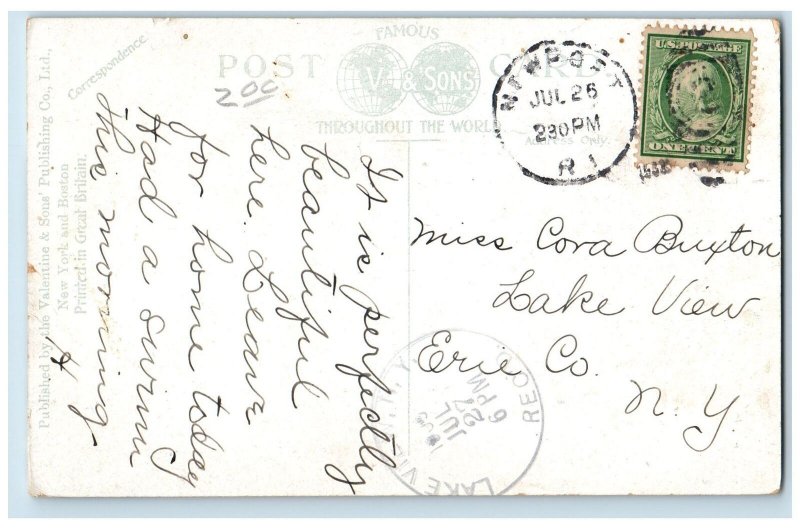 FAMOUS
POST CARD
V. & SONS
THROUGHOUT THE WORLD
200
Correspondence
Address Only.
Published by the Valentine & Sons' Publishing Co., Ltd.,
New York and Boston
Printed in Great Britain.
NEWPORT
JUL 26
230PM
R I
U.S. POSTAGE
ONE CENT
It is perfectly
beautiful
here. Leave
for home today
Had a swim
this morning.
H
Miss Cora Buxton
Lake View
Erie Co.
N.Y.
REC'D
6 PM
27
JUL
LAKE VIEW N.Y.